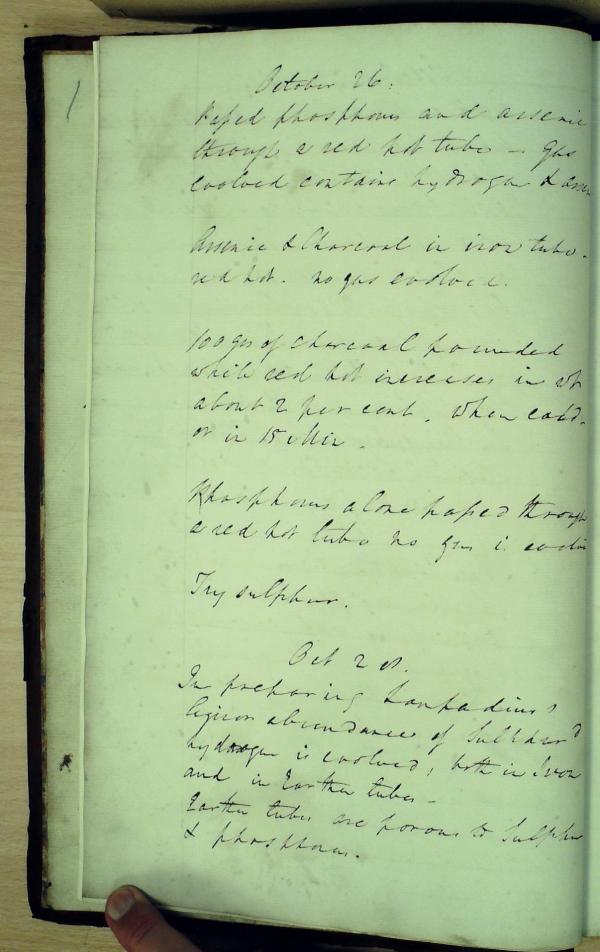 October 26.
Passed phosphorus and arsenic
through a red hot tube - gas
evolved contains hydrogen &
Arsenic & Charcoal in iron tube -
red hot. no gas evolved.
100 grs of charcoal pounded
while red hot increases in wt
about 2 per cent. when cold.
or in 15 Min.
Phosphorus alone passed through
a red hot tube no gas is
Try sulphur.
Oct 28.
In preparing Lampadius's
liquor abundance of Sulphurd
hydrogen is evolved, both in Iron
and in Earthen tubes -
Earthen tubes are porous to Sulphur
& phosphorus.